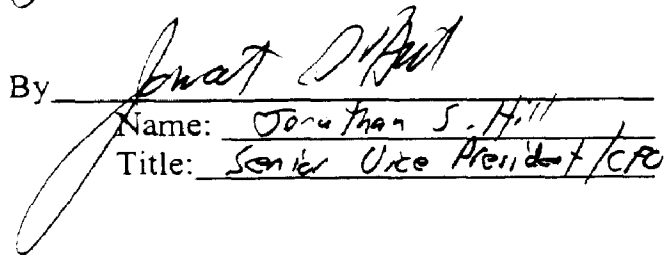 By
Name: Jonathan S. Hill
Title: Senior Vice President/CFO